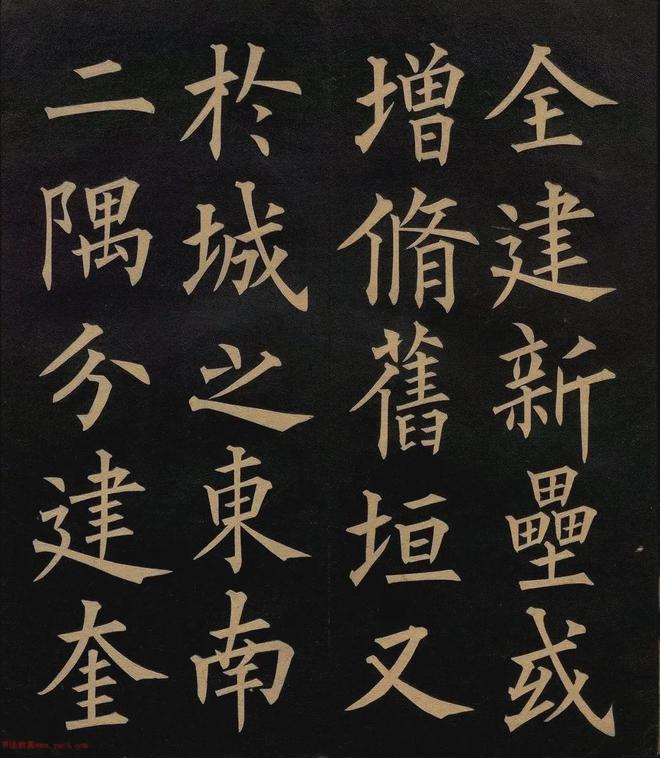 全建新壘或
增脩舊垣又
於城之東南
二隅分建奎